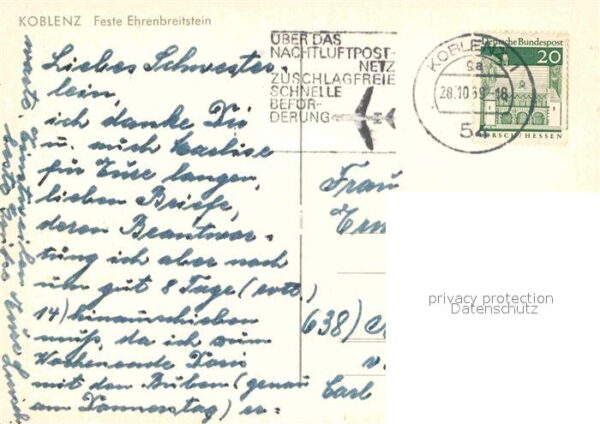 KOBLENZ Feste Ehrenbreitstein
ÜBER DAS
NACHTLUFTPOST-
NETZ
ZUSCHLAGFREIE
SCHNELLE
BEFÖR-
DERUNG
KOBLENZ
28.10.69-18
54
Deutsche Bundespost
20
LORSCH/HESSEN
Liebes Schwester-
lein,
ich danke Dir
u. auch
für Eure langen,
lieben Briefe,
deren Beantwor-
tung ich aber noch
um gut 8 Tage (evtl.
14) hinausschieben
muß, da ich zum
Wochenende Doris
mit den Buben (genau
am Donnerstag) er-
Einstweilen
Frau
638)
v.
Carl
privacy protection
Datenschutz